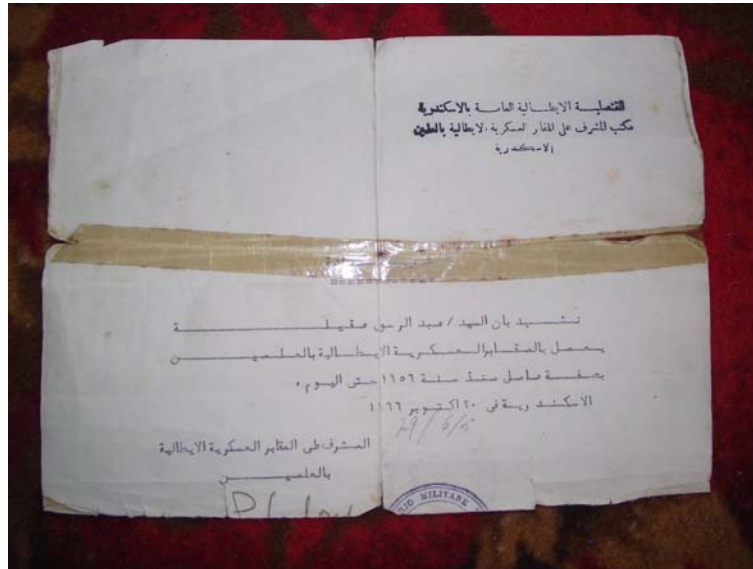 القنصلية الايطالية العامة بالاسكندرية
مكتب المشرف على المقابر العسكرية الايطالية بالعلمين
الاسكندرية
نشهد بان السيد / عبد الرسول عقيلة
يعمل بالمقابر العسكرية الايطالية بالعلمين
بصفة عامل منذ سنة ١٩٥٦ حتى اليوم ،
الاسكندرية فى ٢٠ اكتوبر ١٩٦٦
29/6/5
المشرف على المقابر العسكرية الايطالية
بالعلمين
MILITARE